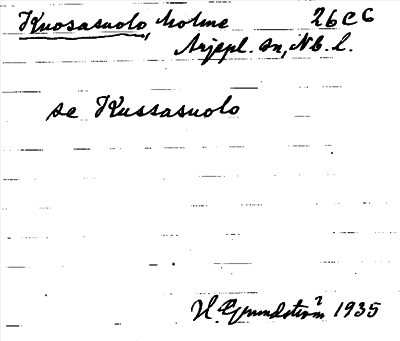 Kuosasuolo, holme 26 C 6
Arjepl. sn, Nb. l.
se Kussasuolo
H. Grundström 1935